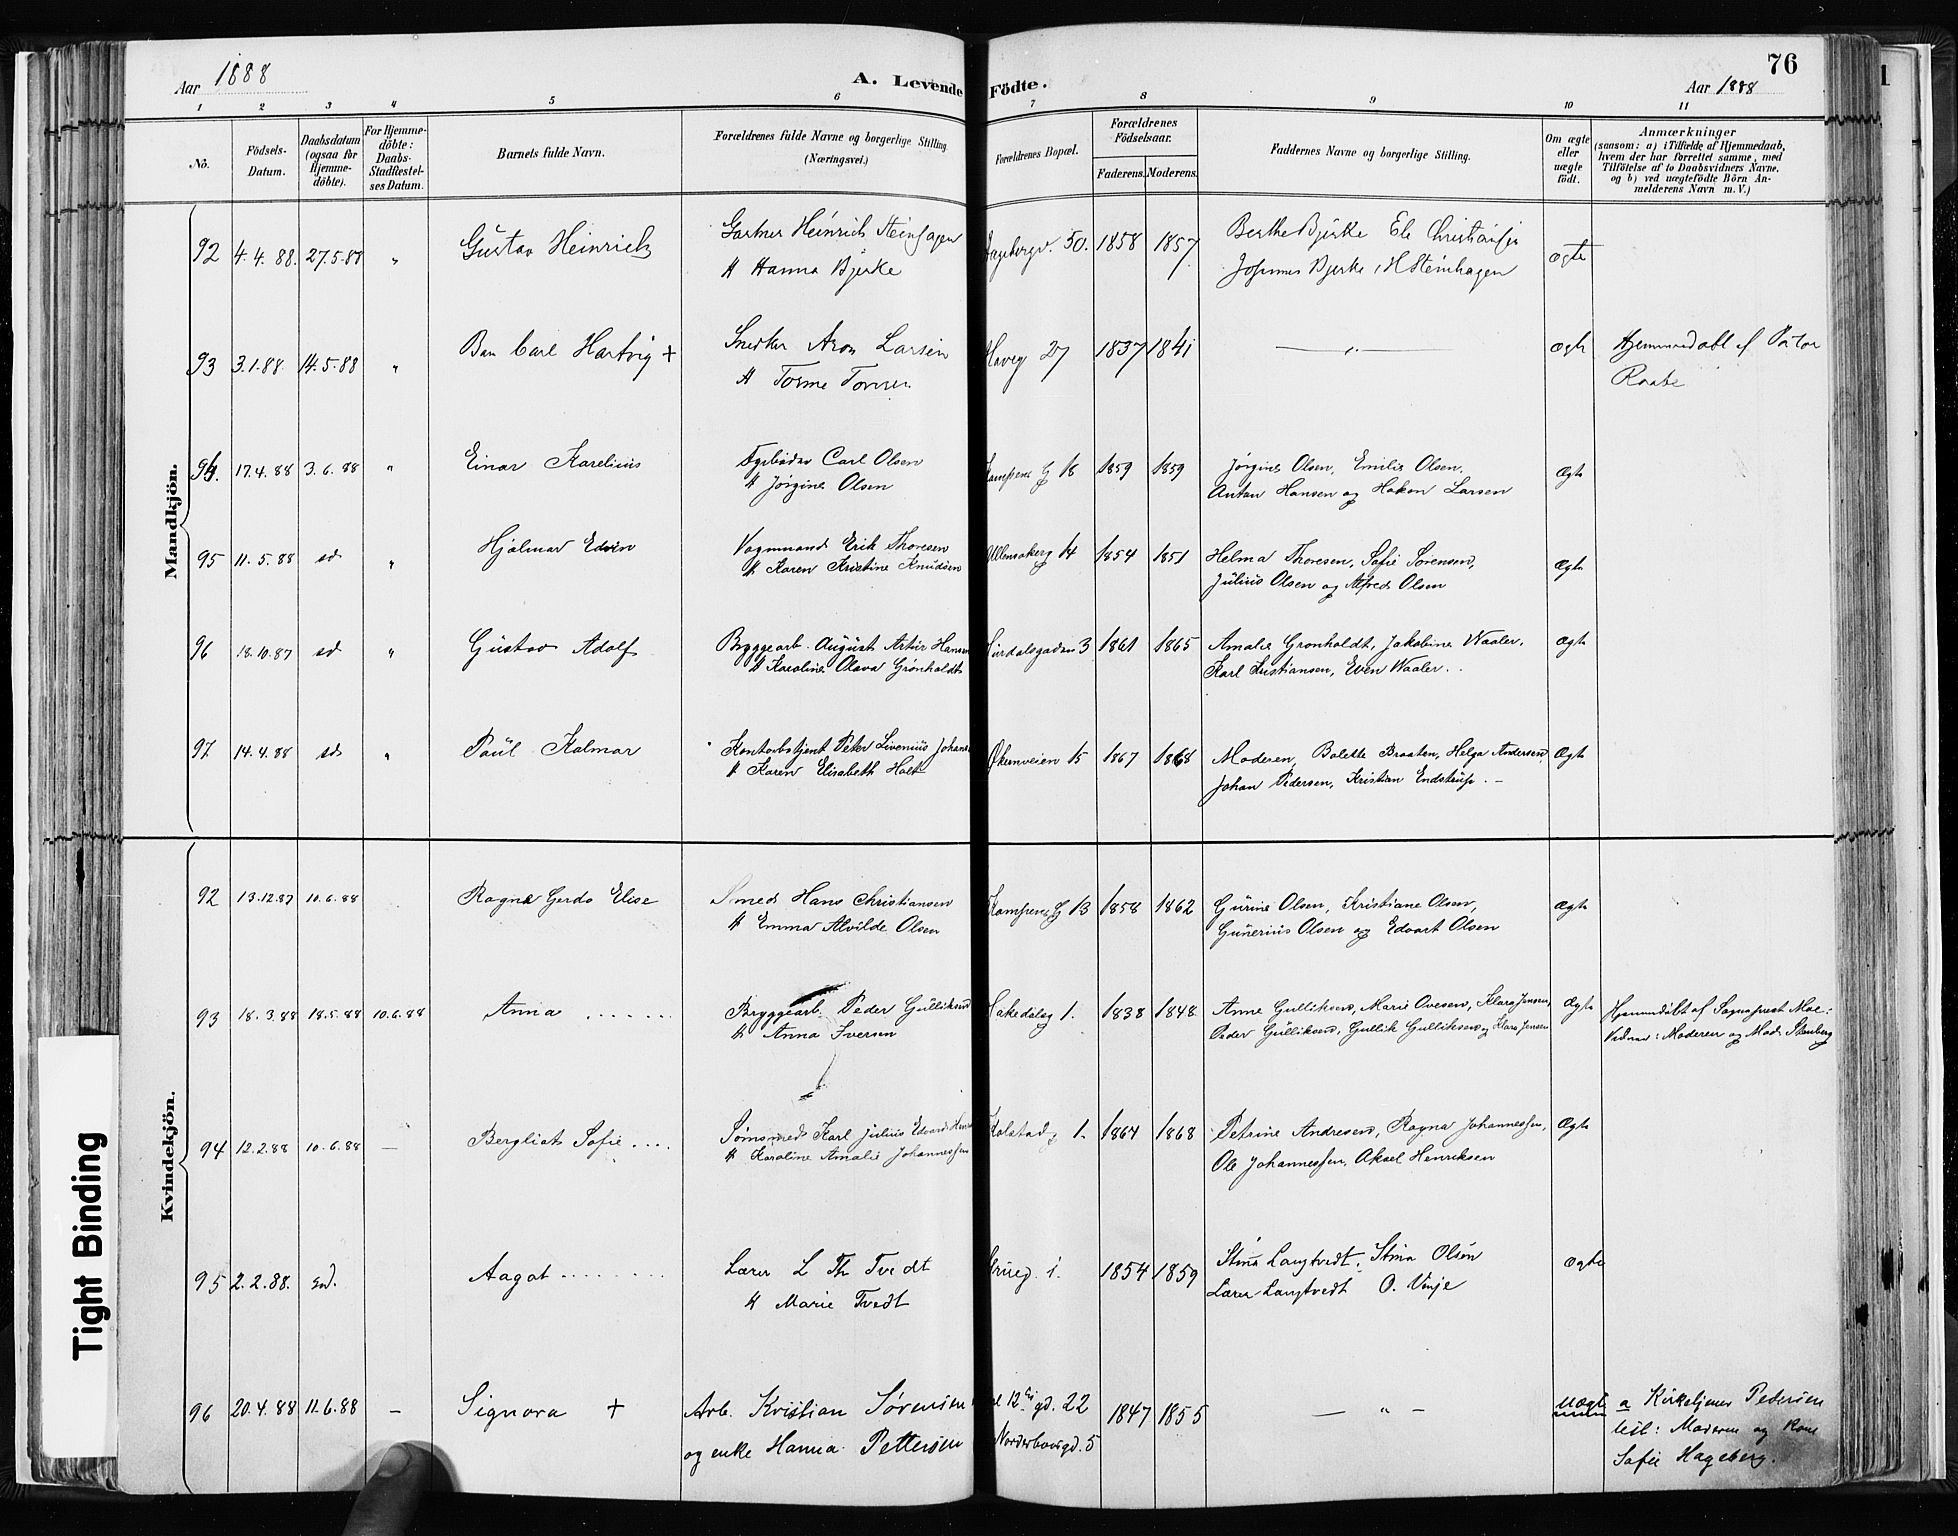 Aar 1888
A. Levende Födte.
76
Aar 1888
1 2 3 4 5 6 7 8 9 10 11
No.
Födsels-
Datum.
Daabsdatum
(ogsaa for
Hjemme-
döbte).
For Hjemme-
döbte:
Daabs-
Stadfæstel-
ses Datum.
Barnets fulde Navn.
Forældrenes fulde Navne og borgerlige Stilling
(Næringsvei.)
Forældrenes Bopæl.
Forældrenes
Födselsaar.
Faderens. Moderens.
Faddernes Navne og borgerlige Stilling.
Om ægte
eller
uægte
födt.
Anmærkninger
(saasom: a) i Tilfælde af Hjemmedaab,
hvem der har forrettet samme, med
Tilföielse af to Daabsvidners Navne,
og b) ved uægtefödte Börn An-
melderens Navn m. V.)
Mandkjön.
92 4.4.88. 27.5.88 " Gustav Heinrich Gartner Heinrich Steinhagen 50. 1858 1857 Berthe Bjerke ægte
H Hanna Bjerke Johannes Bjerke, H Steinhagen
93 3.1.88. 14.5.88 " Carl Hartvig + Snedker Aron Larsen 27 1837 1841 — " — ægte Hjemmedøbt af Pastor
H Raabe
94. 17.4.88 3.6.88 " Einar Karelius Carl Olsen Kampens G 18 1859 1859 Jørgine Olsen, Emilie Olsen, Ægte
H Jørgine Olsen Anton Hansen og Hakon Larsen
95 11.5.88 sd " Hjalmar Edvin Vognmand Erik Thoresen Ullensakerg 14 1854 1851 Helma Thoresen, Sofie Sørensen, Ægte
H Karen Kristine Knudsen Julius Olsen og Alfred Olsen
96 18.10.87 sd " Gustav Adolf Byggearb. August Artur Hansen Hurdalsgaden 3 1861 1865 Amalie Grønholdt, Jakobine Waaler, Ægte
H Karoline Olava Grønholdt Karl Kristiansen, Even Waaler.
97 14.4.88 sd " Paul Kalmar Kontorbetjent Peter Livenius Johans Økernveien 15 1867 1868 Moderen, Bolette Braaten, Helga Andersen, Ægte
H Karen Elisabeth Holt Johan Pedersen, Kristian Endstrup. —
Kvindekjön.
92 13.12.87 10.6.88 Ragna Gerda Elise Smed Hans Christiansen Kampens G 13 1858 1862 Gurine Olsen, Kristiane Olsen, Ægte
H Emma Alvilde Olsen Gunerius Olsen og Edvart Olsen
93 18.3.88 18.5.88 10.6.88 Anna ...... Bryggearb. Peder Gulliksen Hakedalsg 1. 1838 1848 Anne Gulliksen, Marie Ovesen, Klara Jensen, Ægte Hjemmedøbt af Sognepræst Moe:
H Anna Iversen Peder Gulliksen, Gullik Gulliksen og Klara Jensen Vidner: Moderen og Mad. Stenberg
94 12.2.88 10.6.88 — Bergliot Sofie .... Sømsmed Karl Julius Edvard Kolstadg 1. 1864 1868 Petrine Andresen, Ragna Johannessen, Ægte
H Karoline Amalie Johannessen Ole Johannessen, Aksel Henriksen
95 2.2.88. sd. Aagot ........ Lærer L Th Tvedt 1. 1854 1859 Stina Langtvedt, Stina Olsen Ægte
H Marie Tvedt Lærer Langtvedt O. Vinje
96 20.4.88 11.6.88 — Signora + Arb. Kristian Sørensen 22 1847 1855 — " — uægte a Kirketjener Pedersen
og enke Hanna Pettersen Norderhovsgd. 5 test: Moderen og Kone
Sofie Hageberg.
Tight Binding